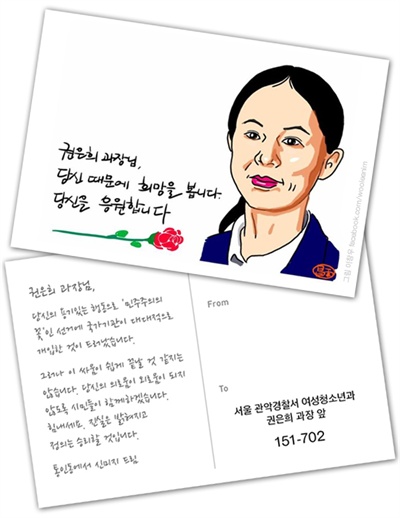 권은희 과장님,
당신 때문에 희망을 봅니다.
당신을 응원합니다
권은희 과장님,
당신의 용기있는 행동으로 '민주주의의
꽃'인 선거에 국가기관이 대대적으로
개입한 것이 드러났습니다.
그러나 이 싸움이 쉽게 끝날 것 같지는
않습니다. 당신의 의로움이 외로움이 되지
않도록 시민들이 함께하겠습니다.
힘내세요. 진실은 밝혀지고
정의는 승리할 것입니다.
통인동에서 신미지 드림
From
To
서울 관악경찰서 여성청소년과
권은희 과장 앞
151-702